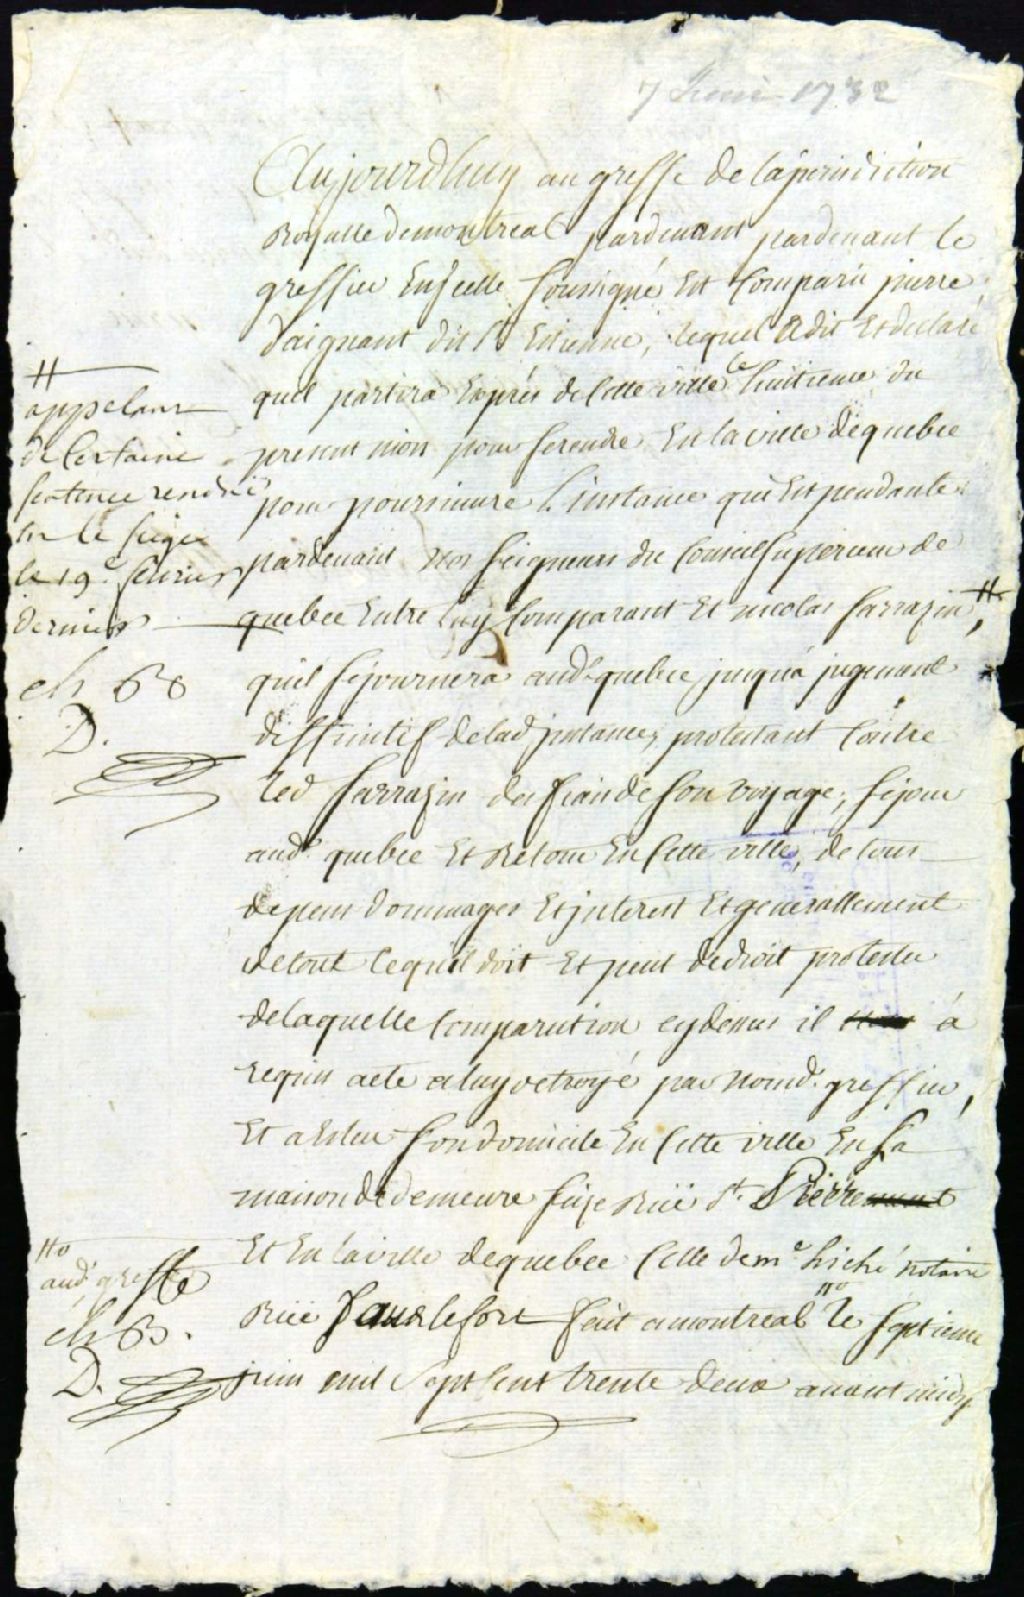 7 Juin 1732
Aujourdhuy au greffe de la jurisdiction
Royalle de montreal pardevant pardevant le
greffier En jcelle soussigné Est Comparu pierre
daignant dit St Etienne, lequel a dit Et declaré
quil partira Exprés de Cette ville le huitieme du
present mois pour se rendre En la ville de quebec
pour poursuivre l'instance qui Est pendante
pardevant Nos seigneurs du Conseil superieur de
quebec Entre luy Comparant Et nicolas sarrazin, #
quil sejournera aud. quebec jusqu'a jugement
diffinitif de lad jnstance, protestant Contre
led sarrazin des frais de son voyage, sejour
aud. quebec Et Retour En Cette ville, de tous
depens dommages Et jnterest Et generallement
de tout Ce quil doit Et peut de droit protester
de laquelle Comparution cy dessus il à
requis acte a luy octroyé par nousd. greffier,
Et a Esleu son domicile En Cette ville En sa
maison de demeure size Rüe St. Pierre
Et En la ville de quebec Celle de me hiché notaire
Rüe sault le fort fait a montreal #o le septieme
juin mil sept Cent trente deux avant midy
#
appelant
de Certaine
sentence rendüe
en Ce siege
le 19e. fevrier
dernier
ch B
D.
#o
aud. greffe
ch B.
D.